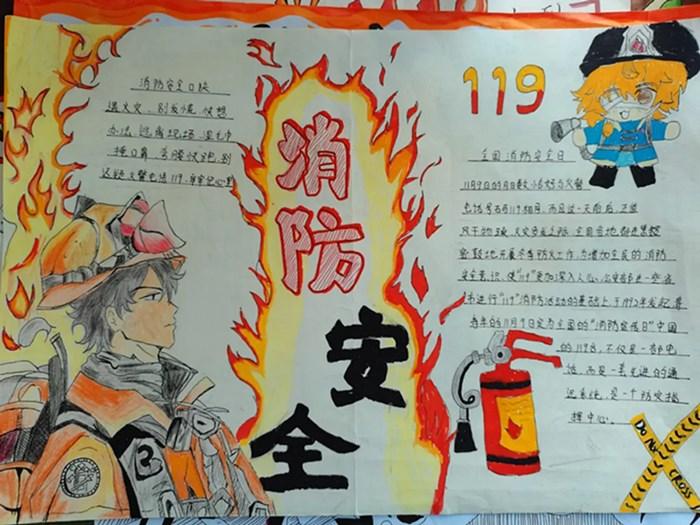 消防安全口诀
遇火灾、别发慌、快想
办法、逃离现场、湿毛巾
捂口鼻、弯腰快跑、别
迟疑火警电话119、牢牢记心里
消
防
安
全
119
全国消防安全日
11月9日的月日数
电话号码119相同,而且这一天前后,正值
风干物燥、火灾多发之际,全国各地都在紧
密鼓地开展冬季防火工作。为增加全民的消防
安全意识,使"119"更加深入人心,公安部在一些省
市进行"119"消防活动的基础上,于1992年发起,
每年的11月9日定为全国的"消防宣传日"中国
的119台,不仅是一部电
话,而是一套先进的通
讯系统,是一个防灾指
挥中心。
Do Not CROSS